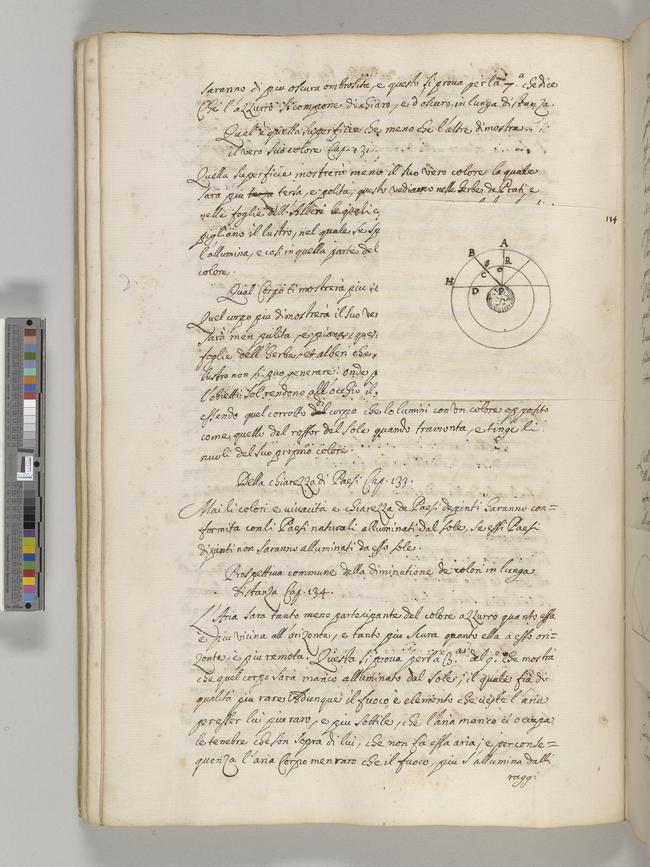 saranno di piu oscura ombrosità, e questo si prova per la 7.a che dice
Che l'azzurro si compone di chiaro, e d'oscuro in lunga distanza.
Qual'è quella superficie che meno che l'altre dimostra
il vero suo colore Cap. 131
Quella superficie mostrerà meno il suo vero colore la quale
sarà piu tersa, e polita, questo vediamo nelle herbe de Prati, e
nelle foglie dell'Alberi le quali
pigliano il lustro, nel quale se sp
l'allumina, e così in quella parte del
colore.
Qual Corpo ti mostrerà piu il
Quel corpo piu dimostrerà il suo ver
sarà men pulita, e piana, i ques
foglie dell'herbe, et alberi che
lustro non si puo generare; onde p
l'obietti Sol rendono all'occhio il
essendo quel corrotto di corpo che lo lumini con un colore opposito
come quello del rossor del sole quando tramonta, e tinge li
nuvoli del suo proprio colore.
Della chiarezza di Paesi Cap. 133.
Mai li colori e vivacità e chiarezza de Paesi depinti haranno con=
formita con li Paesi naturali alluminati dal sole, se essi Paesi
dipinti non saranno alluminati da esso sole.
Prospettiva commune della diminutione de colori in lunga
distanza Cap. 134.
L'Aria sarà tanto meno partecipante del colore azzurro quanto essa
è piu vicina all'orizonte, e tanto piu scura quanto ella a esso ori=
zonte è piu remota. Questo si prova per la 3.a del 9.o che mostra
che quel corpo sarà manco alluminato dal sole, il quale fia di
qualità piu rare. Adunque il fuoco, è elemento che veste l'aria
per esser lui piu raro, e piu sottile, che l'aria manco ci occupa
le tenebre che son sopra di lui, che non fa essa aria; e per conse=
quenza l'aria Corpo men raro che il fuoco, piu s'allumina dalli
raggi
134
A
B
S
R
o
C
H
D
P